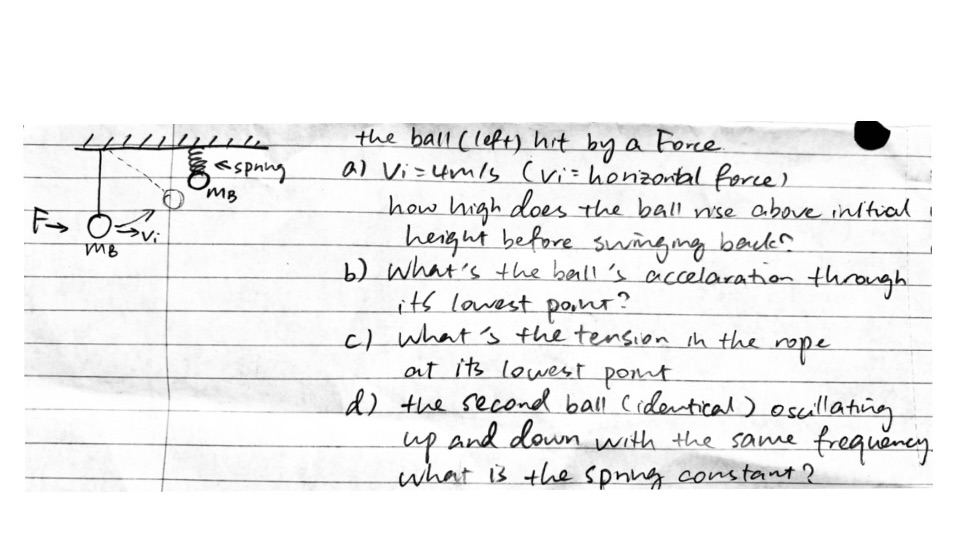 the ball (left) hit by a Force.
a) Vi = 4m/s (Vi = horizontal force)
how high does the ball rise above initial
height before swinging back?
b) What's the ball's accelaration through
its lowest point?
c) What's the tension in the rope
at its lowest point
d) the second ball (identical) oscillating
up and down with the same frequency.
what is the spring constant?
← spring
mB
F→
Vi
mB